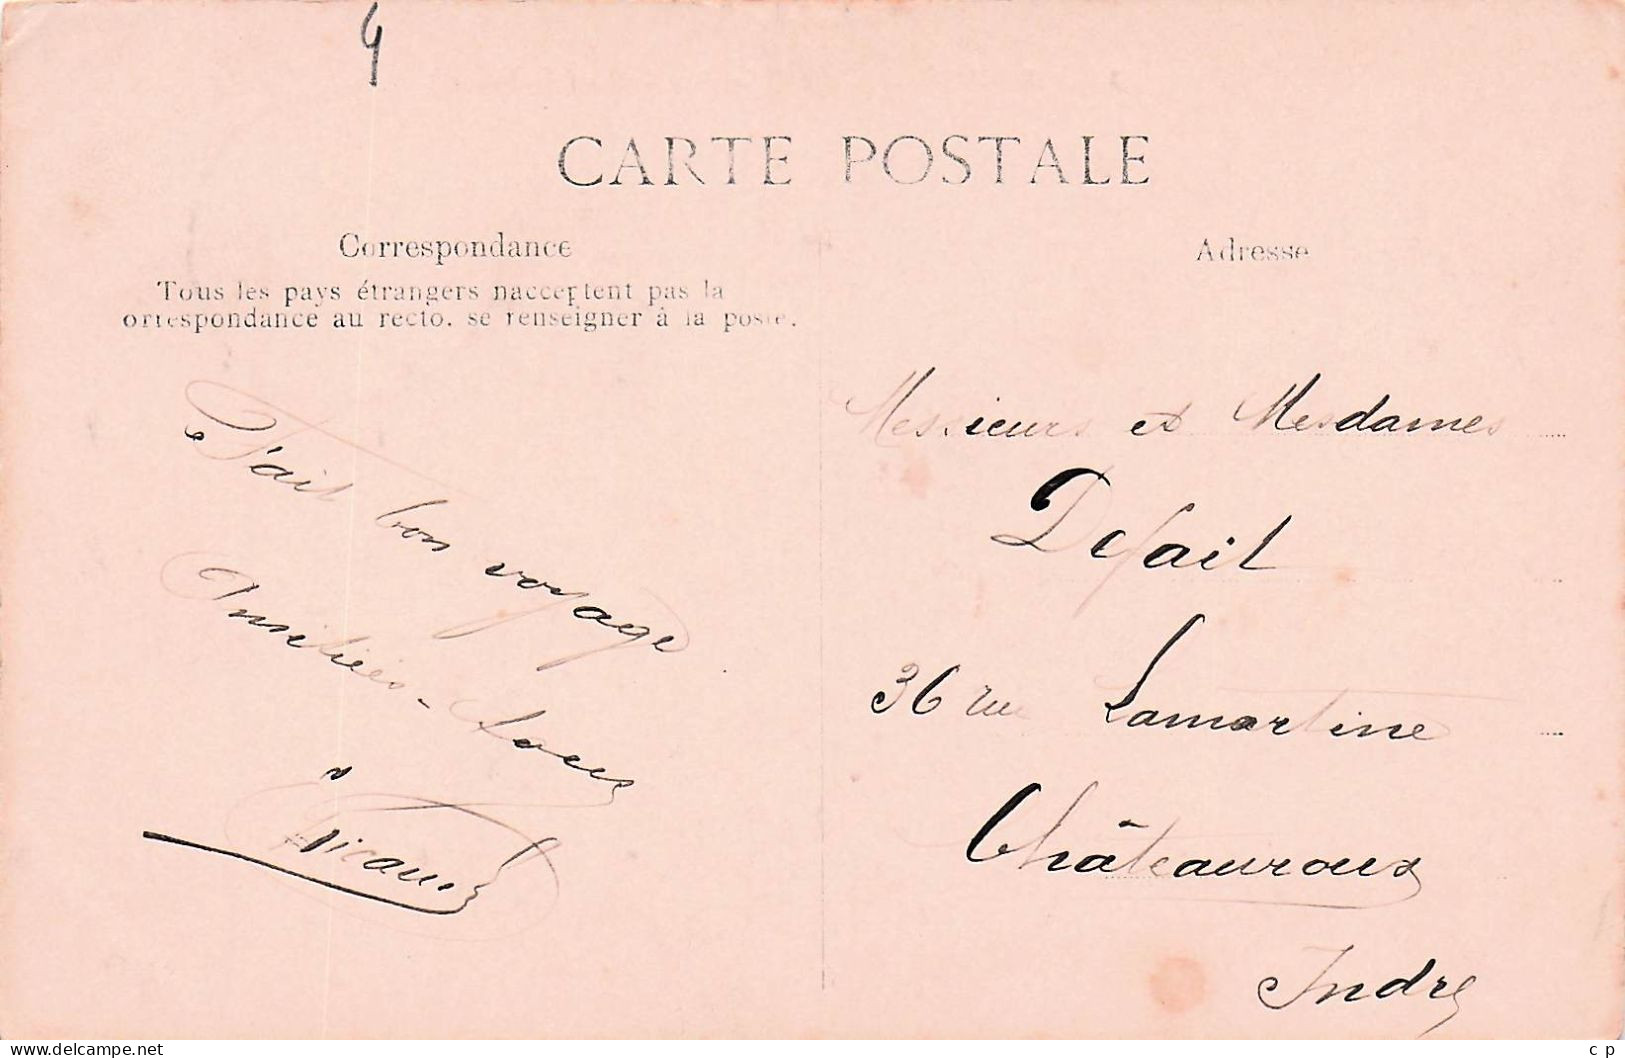 4
CARTE POSTALE
Correspondance
Tous les pays étrangers n'acceptent pas la
orrespondance au recto. se renseigner à la poste.
Fait bon voyage
Amitiés - tous
Adresse
Messieurs et Mesdames
Defait
36 rue Lamartine
Châteauroux
Indre
www.delcampe.net
c p